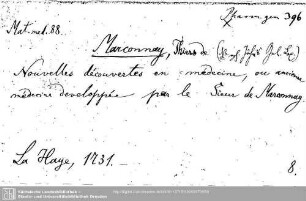 Mat. med. 88.
Pharm. gen 396
Marconnay, de
Nouvelles découvertes en médecine, ou ancienne
médecine developpée par le Sieur de Marconnay
La Haye, 1731.
8.
Sächsische Landesbibliothek –
Staats- und Universitätsbibliothek Dresden